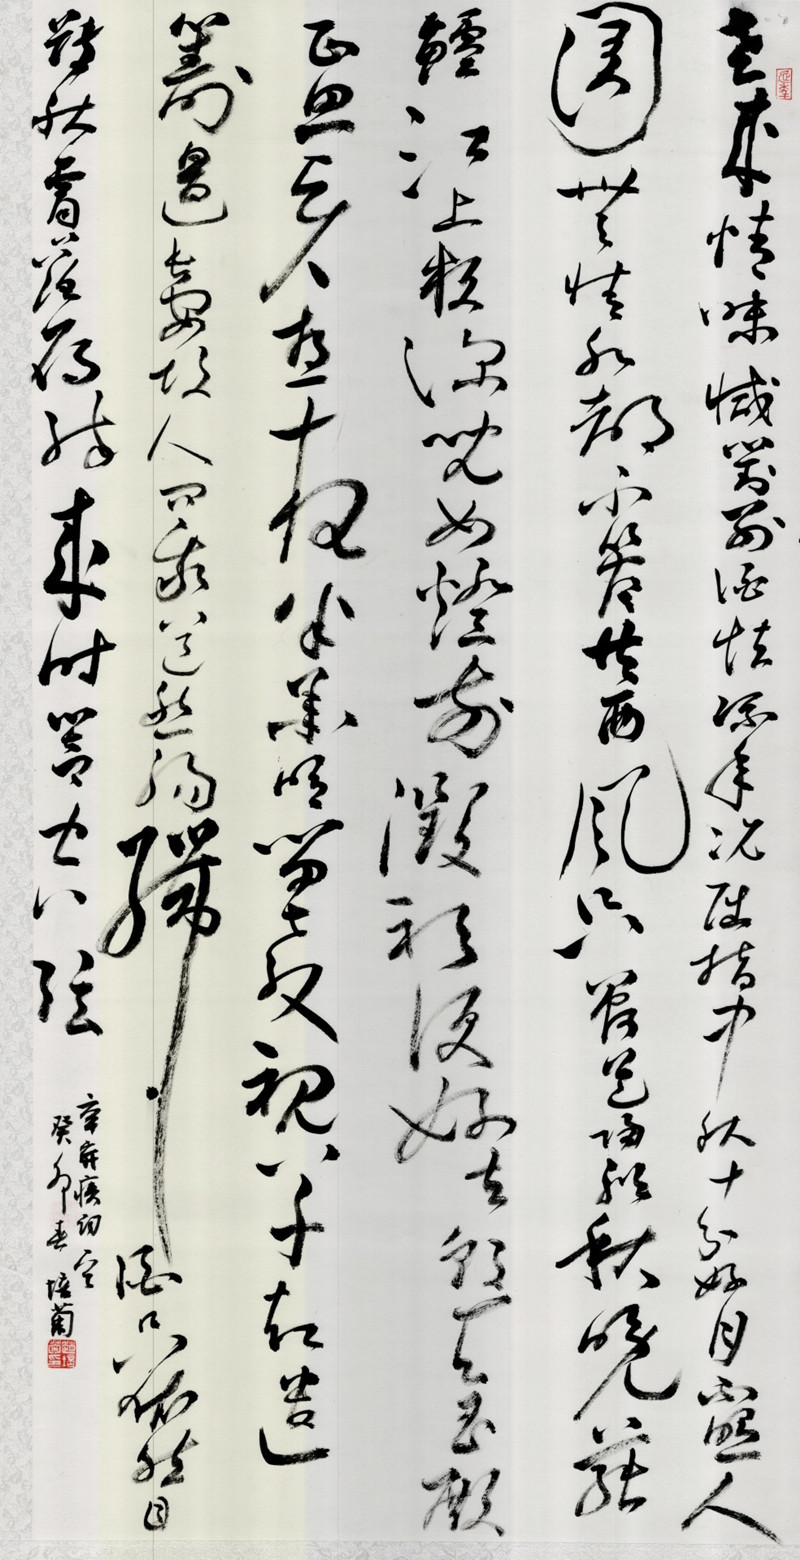 老来情味减對别酒怯流年况屈指中秋十分好月不照人
圆無情水都不管共西風只管送歸船秋晚蓴
鱸江上夜深兒女燈前徵衫便好去朝天玉殿
正思賢想夜半承明留教視草却遣
籌邊長安故人问我道愁腸殢酒只依然目
斷秋霄落雁醉来时響空弦
辛弃疾词
癸卯春 培